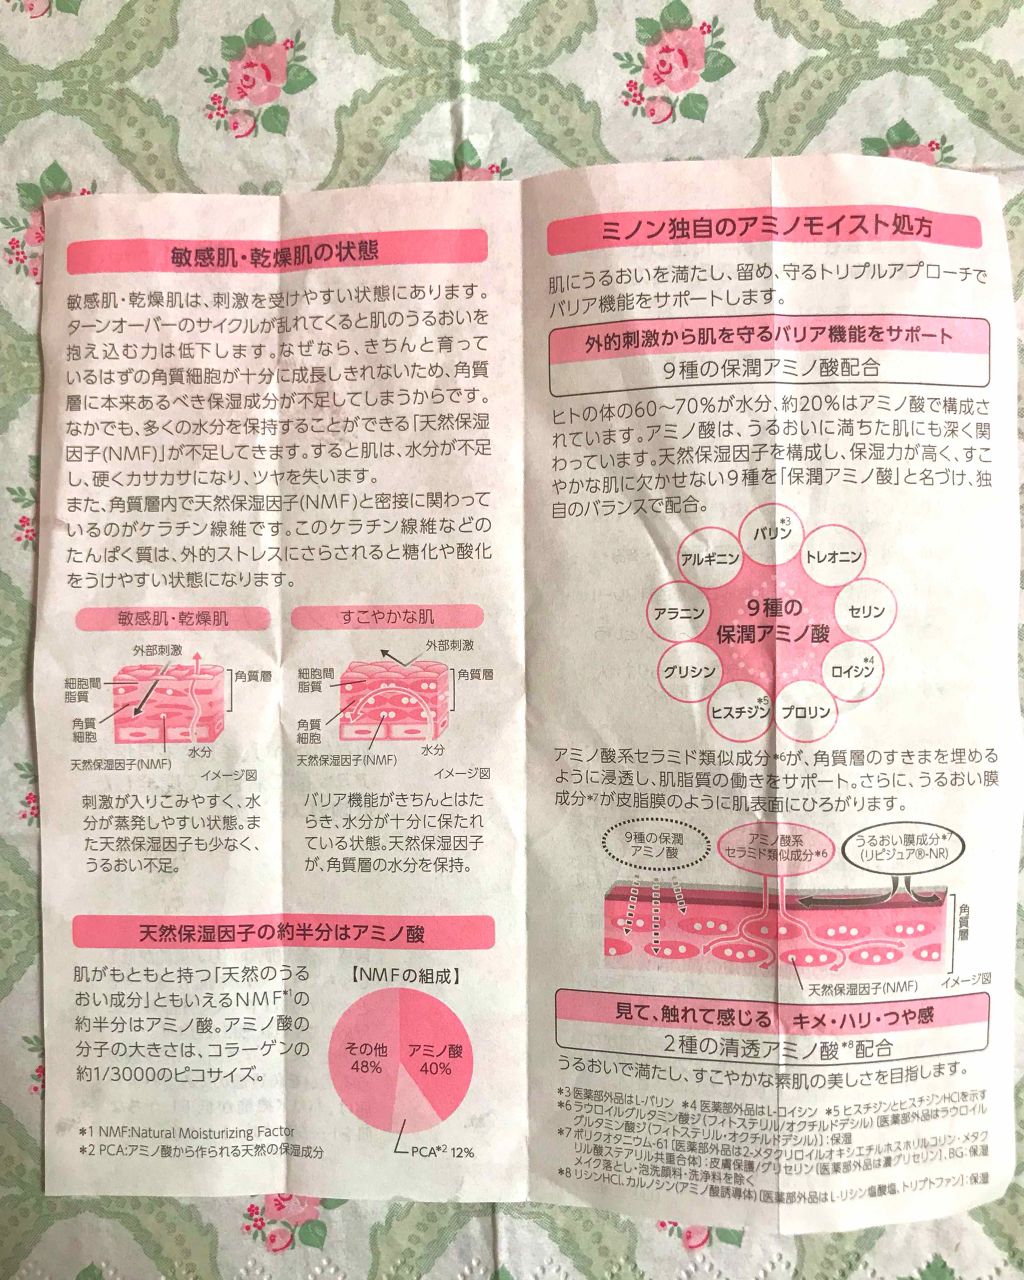 敏感肌・乾燥肌の状態
敏感肌・乾燥肌は、刺激を受けやすい状態にあります。
ターンオーバーのサイクルが乱れてくると肌のうるおいを
抱え込む力は低下します。なぜなら、きちんと育って
いるはずの角質細胞が十分に成長しきれないため、角質
層に本来あるべき保湿成分が不足してしまうからです。
なかでも、多くの水分を保持することができる「天然保湿
因子(NMF)」が不足してきます。すると肌は、水分が不足
し、硬くカサカサになり、ツヤを失います。
また、角質層内で天然保湿因子(NMF)と密接に関わって
いるのがケラチン線維です。このケラチン線維などの
たんぱく質は、外的ストレスにさらされると糖化や酸化
をうけやすい状態になります。
敏感肌・乾燥肌
外部刺激
細胞間
脂質
角質層
角質
細胞
水分
天然保湿因子(NMF)
イメージ図
刺激が入りこみやすく、水
分が蒸発しやすい状態。ま
た天然保湿因子も少なく、
うるおい不足。
すこやかな肌
外部刺激
細胞間
脂質
角質層
角質
細胞
水分
天然保湿因子(NMF)
イメージ図
バリア機能がきちんとはた
らき、水分が十分に保たれ
ている状態。天然保湿因子
が、角質層の水分を保持。
天然保湿因子の約半分はアミノ酸
肌がもともと持つ「天然のうる
おい成分」ともいえるNMF*1の
約半分はアミノ酸。アミノ酸の
分子の大きさは、コラーゲンの
約1/3000のピコサイズ。
【NMFの組成】
その他
48%
アミノ酸
40%
PCA*2 12%
*1 NMF:Natural Moisturizing Factor
*2 PCA:アミノ酸から作られる天然の保湿成分
ミノン独自のアミノモイスト処方
肌にうるおいを満たし、留め、守るトリプルアプローチで
バリア機能をサポートします。
外的刺激から肌を守るバリア機能をサポート
9種の保潤アミノ酸配合
ヒトの体の60〜70%が水分、約20%はアミノ酸で構成さ
れています。アミノ酸は、うるおいに満ちた肌にも深く関
わっています。天然保湿因子を構成し、保湿力が高く、すこ
やかな肌に欠かせない9種を「保潤アミノ酸」と名づけ、独
自のバランスで配合。
バリン*3
アルギニン
トレオニン
アラニン
9種の
保潤アミノ酸
セリン
グリシン
ロイシン*4
ヒスチジン*5
プロリン
アミノ酸系セラミド類似成分*6が、角質層のすきまを埋める
ように浸透し、肌脂質の働きをサポート。さらに、うるおい膜
成分*7が皮脂膜のように肌表面にひろがります。
9種の保潤
アミノ酸
アミノ酸系
セラミド類似成分*6
うるおい膜成分*7
(リピジュア®-NR)
角質層
天然保湿因子(NMF)
イメージ図
見て、触れて感じる キメ・ハリ・つや感
2種の清透アミノ酸*8配合
うるおいで満たし、すこやかな素肌の美しさを目指します。
*3 医薬部外品はL-バリン *4 医薬部外品はL-ロイシン *5 ヒスチジンとヒスチジンHClを示す
*6 ラウロイルグルタミン酸ジ(フィトステリル/オクチルドデシル)〔医薬部外品はラウロイル
グルタミン酸ジ(フィトステリル・オクチルドデシル)〕:保湿
*7 ポリクオタニウム-61〔医薬部外品は2-メタクリロイルオキシエチルホスホリルコリン・メタク
リル酸ステアリル共重合体〕:皮膚保護/グリセリン〔医薬部外品は濃グリセリン〕、BG:保湿
メイク落とし・泡洗顔料・洗浄料を除く
*8 リシンHCl、カルノシン(アミノ酸誘導体)〔医薬部外品はL-リシン塩酸塩、トリプトファン〕:保湿